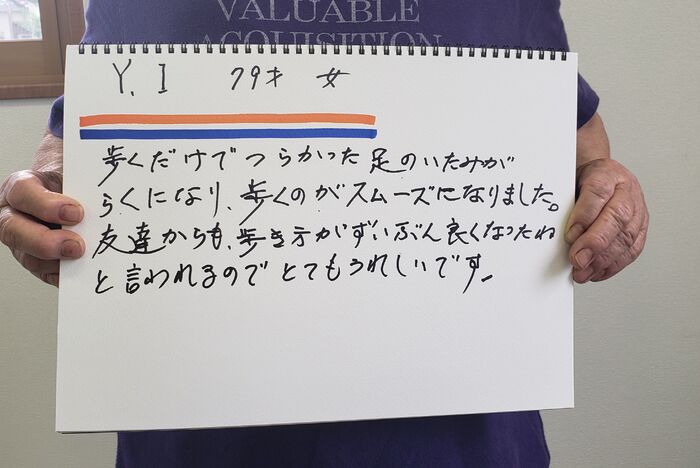 VALUABLE
ACQUISITION
Y. I 79才 女
歩くだけでつらかった足のいたみが
らくになり、歩くのがスムーズになりました。
友達からも、歩き方がずいぶん良くなったね
と言われるのでとてもうれしいです。